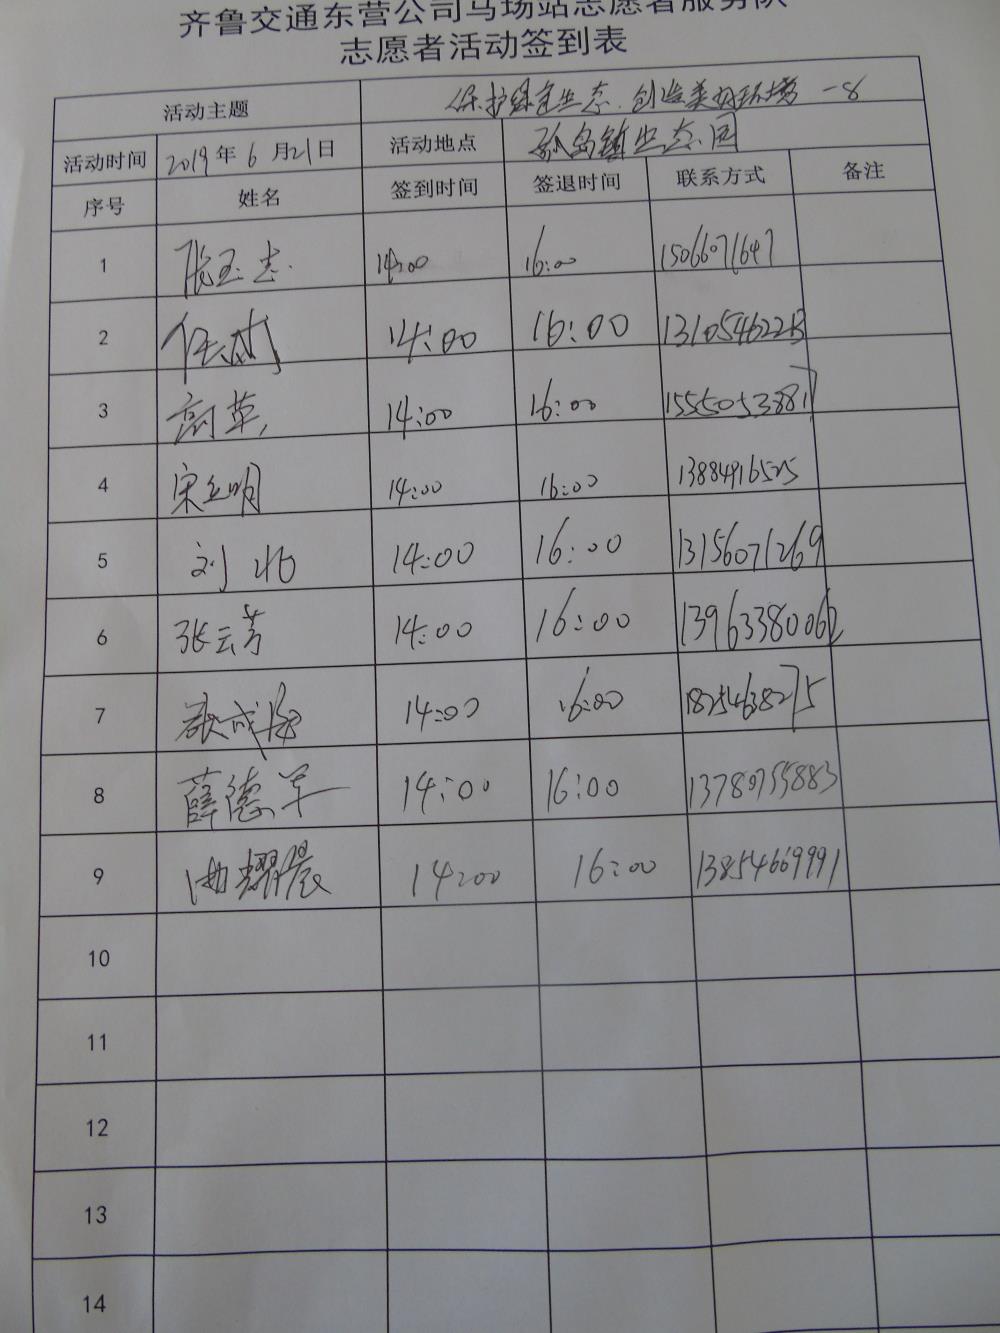 齐鲁交通东营公司马场站志愿者服务队
志愿者活动签到表
活动主题 保护绿色生态.创造美好环境 -8
活动时间 2019年6月21日 活动地点 孤岛镇生态园
序号 姓名 签到时间 签退时间 联系方式 备注
1 张玉志 14:00 16:00 15066071647
2 任斌 14:00 16:00 13105462213
3 高革 14:00 16:00 15550533817
4 宋立明 14:00 16:00 13884916525
5 刘 14:00 16:00 13156071269
6 张云芳 14:00 16:00 13963380062
7 14:00 16:00 18254638275
8 薛德军 14:00 16:00 13780755883
9 曲耀晨 14:00 16:00 13854669991
10
11
12
13
14